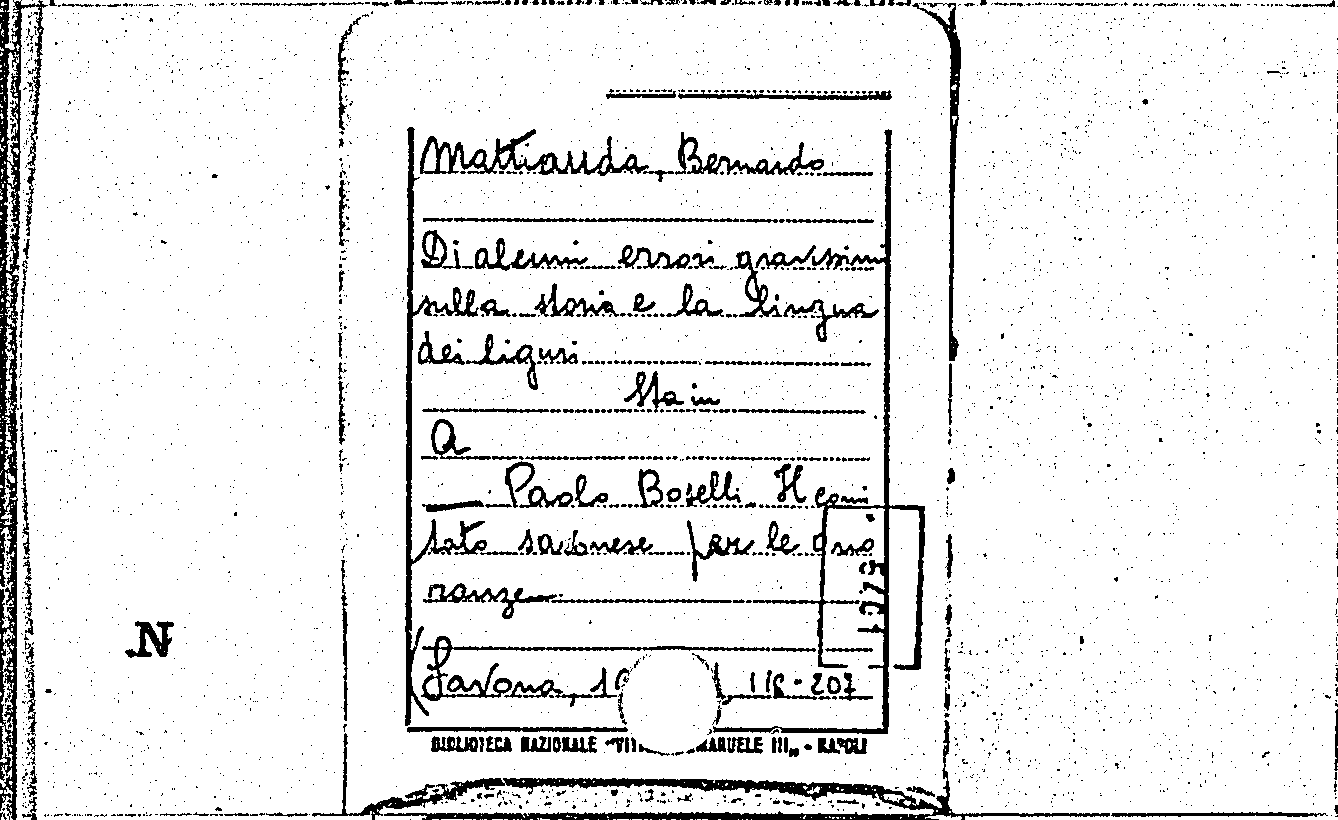 Mattiauda, Bernardo
Di alcuni errori gravissimi
sulla storia e la lingua
dei liguri
Sta in
A
Paolo Boselli. Il comi
tato savonese per le ono
ranze
(Savona, 19
BIBLIOTECA NAZIONALE "VITT EMANUELE III„ - NAPOLI
N